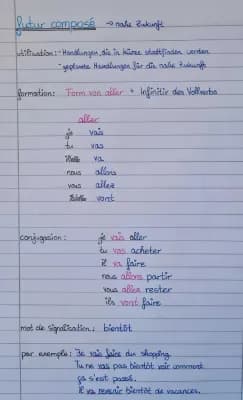 futur composé → nahe Zukunft
utilisation: - Handlungen, die in Kürze stattfinden werden
- geplante Handlungen für die nahe Zukunft
formation: Form von aller + Infinitif des Vollverbs
aller
je vais
tu vas
il/elle va
nous allons
vous allez
ils/elles vont
conjugaison: je vais aller
tu vas acheter
il va faire
nous allons partir
vous allez rester
ils vont faire
mot de signalisation: bientôt
par exemple: Je vais faire du shopping.
Tu ne vas pas bientôt voir comment
ça s'est passé.
Il va revenir bientôt de vacances.